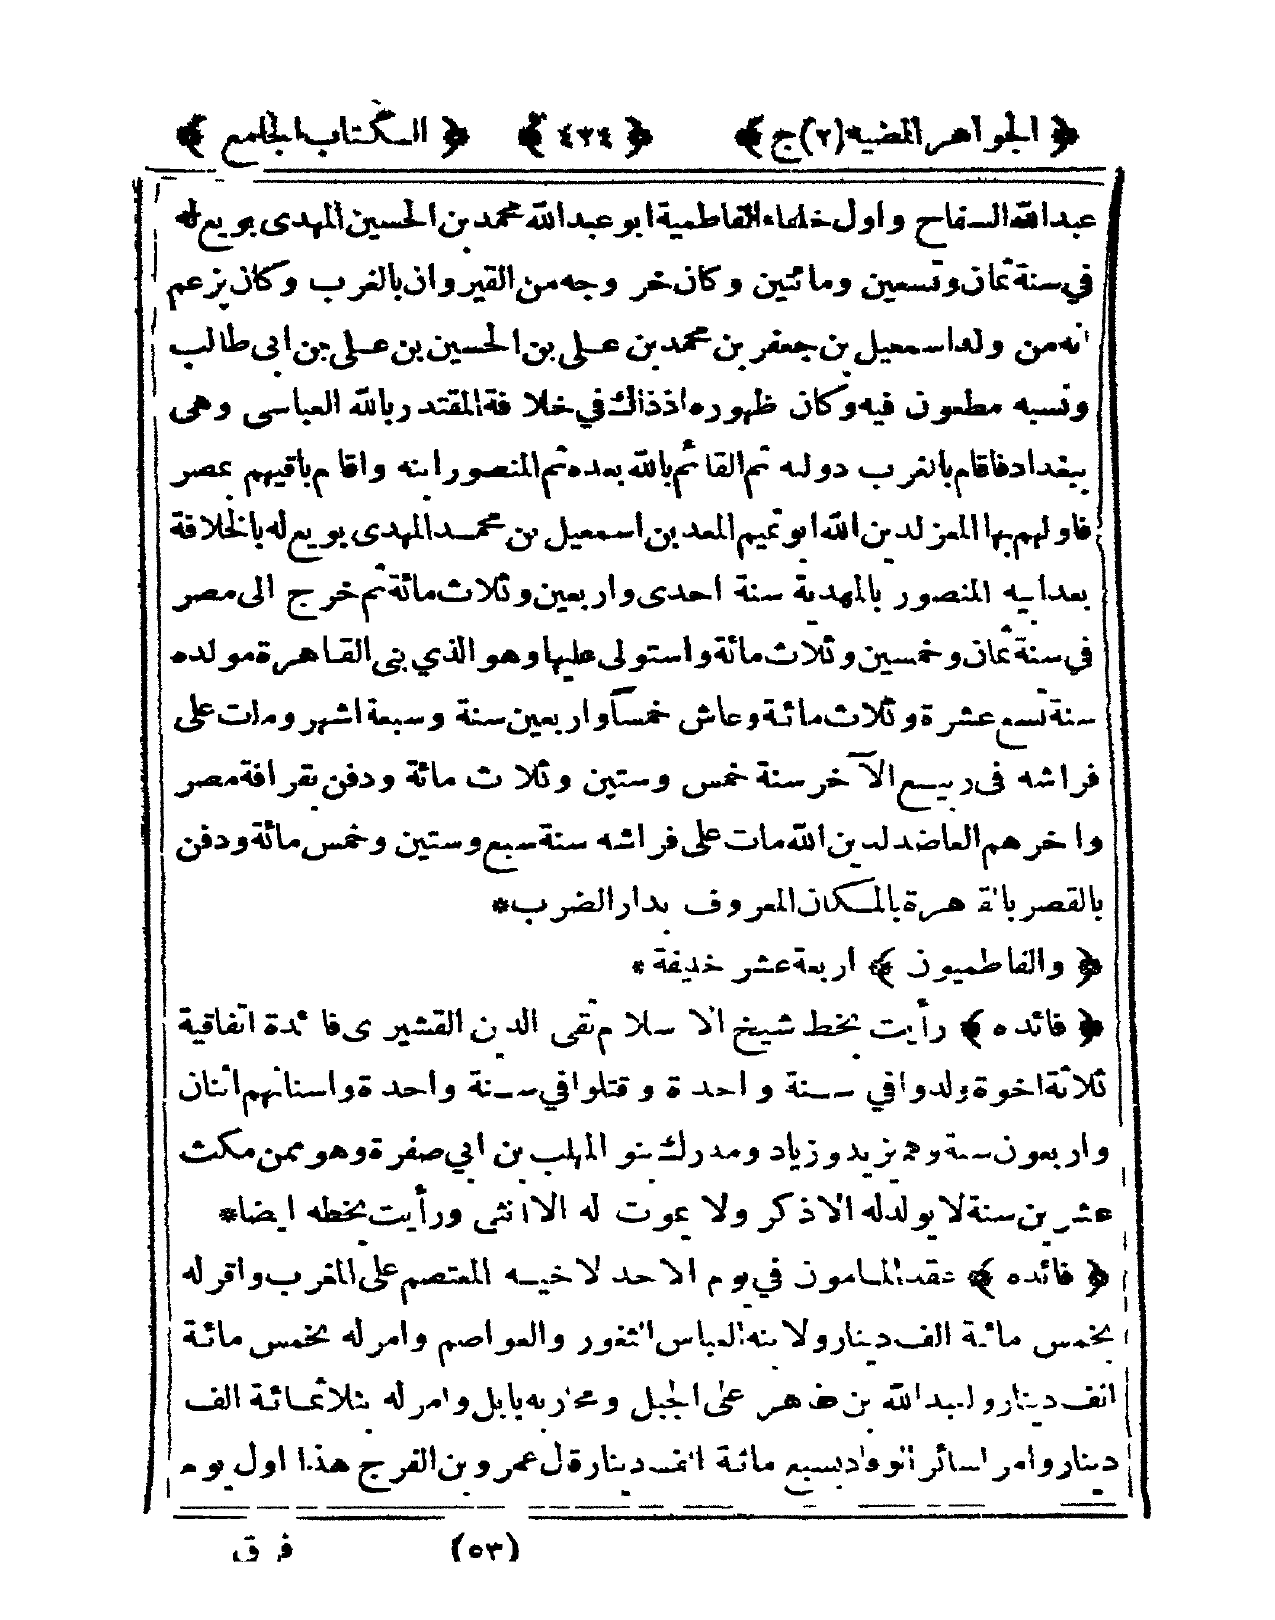 ﴿ الجواهر المضيه (٢)ج ﴾ ﴿ ٤٣٤ ﴾ ﴿ الكتاب الجامع ﴾
عبد الله السفاح واول خلفاء الفاطمية ابو عبد الله محمد بن الحسين المهدى بويع له
في سنة ثمان وتسعين ومائتين وكان خروجه من القيروان بالغرب وكان يزعم
انه من ولد اسمعيل بن جعفر بن محمد بن علي بن الحسين بن علي بن ابى طالب
ونسبه مطعون فيه وكان ظهوره اذ ذاك في خلافة المقتدر بالله العباسى وهى
ببغداد فاقام بالغرب دولته ثم القائم بالله بعده ثم المنصور ابنه واقام باقيهم بمصر
فاولهم بها المعز لدين الله ابو تميم المعد بن اسمعيل بن محمد المهدى بويع له بالخلافة
بعد ابيه المنصور بالمهدية سنة احدى واربعين وثلاث مائة ثم خرج الى مصر
في سنة ثمان وخمسين وثلاث مائة واستولى عليها وهو الذي بنى القاهرة مولده
سنة تسع عشرة وثلاث مائة وعاش خمسا واربعين سنة وسبعة اشهر ومات على
فراشه فى ربيع الآخر سنة خمس وستين وثلاث مائة ودفن بقرافة مصر
واخرهم العاضد لدين الله مات على فراشه سنة سبع وستين وخمس مائة ودفن
بالقصر بالقاهرة بالمكان المعروف بدار الضرب*
﴿ والفاطميون ﴾ اربعة عشر خليفة *
﴿ فائده ﴾ رأيت بخط شيخ الاسلام تقى الدين القشيرى فائدة اتفاقية
ثلاثة اخوة ولدوا في سنة واحدة وقتلوا في سنة واحدة واسنانهم اثنان
واربعون سنة وهم يزيد وزياد ومدرك بنو المهلب بن ابي صفرة وهو ممن مكث
عشرين سنة لا يولد له الا ذكر ولا يموت له الا انثى ورأيت بخطه ايضا*
﴿ فائده ﴾ عقد المامون في يوم الاحد لاخيه المعتصم على المغرب واقر له
بخمس مائة الف دينار ولابنه العباس الثغور والعواصم وامر له بخمس مائة
الف دينار ولعبد الله بن طاهر على الجبل ومحاربه بابل وامر له بثلاثمائة الف
دينار وامر لسائر القواد بسبع مائة الف دينار قال عمرو بن الفرج هذا اول يوم
(٥٣) فرق